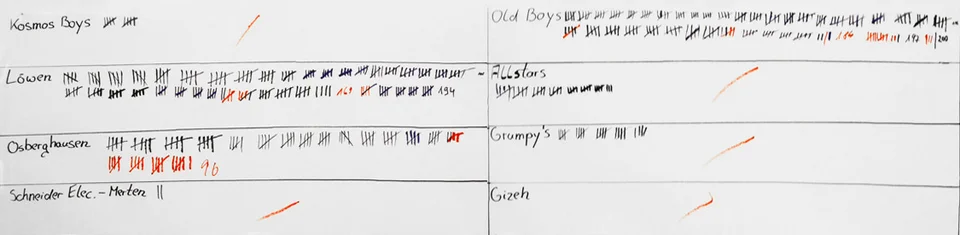 Kosmos Boys
Löwen
169 194
Osberghausen
96
Schneider Elec. - Merten ||
Old Boys
186 197 /200
Allstars
Grumpy's
Gizeh